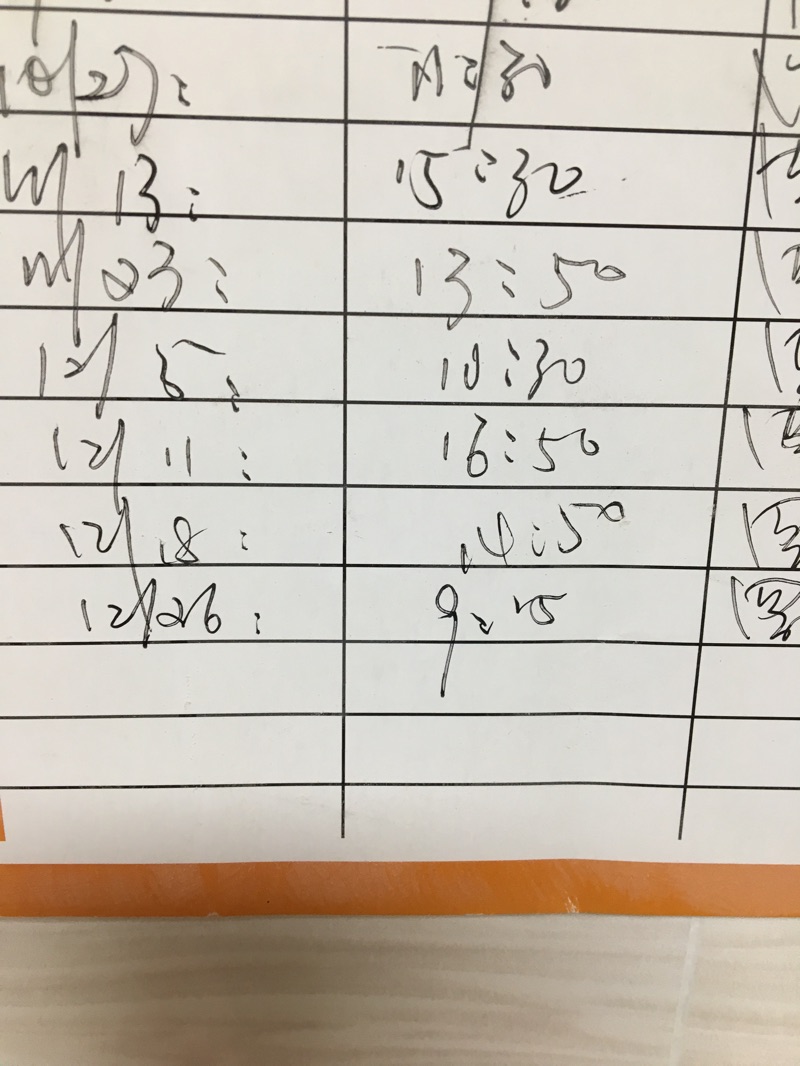 10/27: 11:30
11/13: 15:30
11/23: 13:50
12/5: 10:30
12/11: 16:50
12/18: 14:50
12/26: 9:15